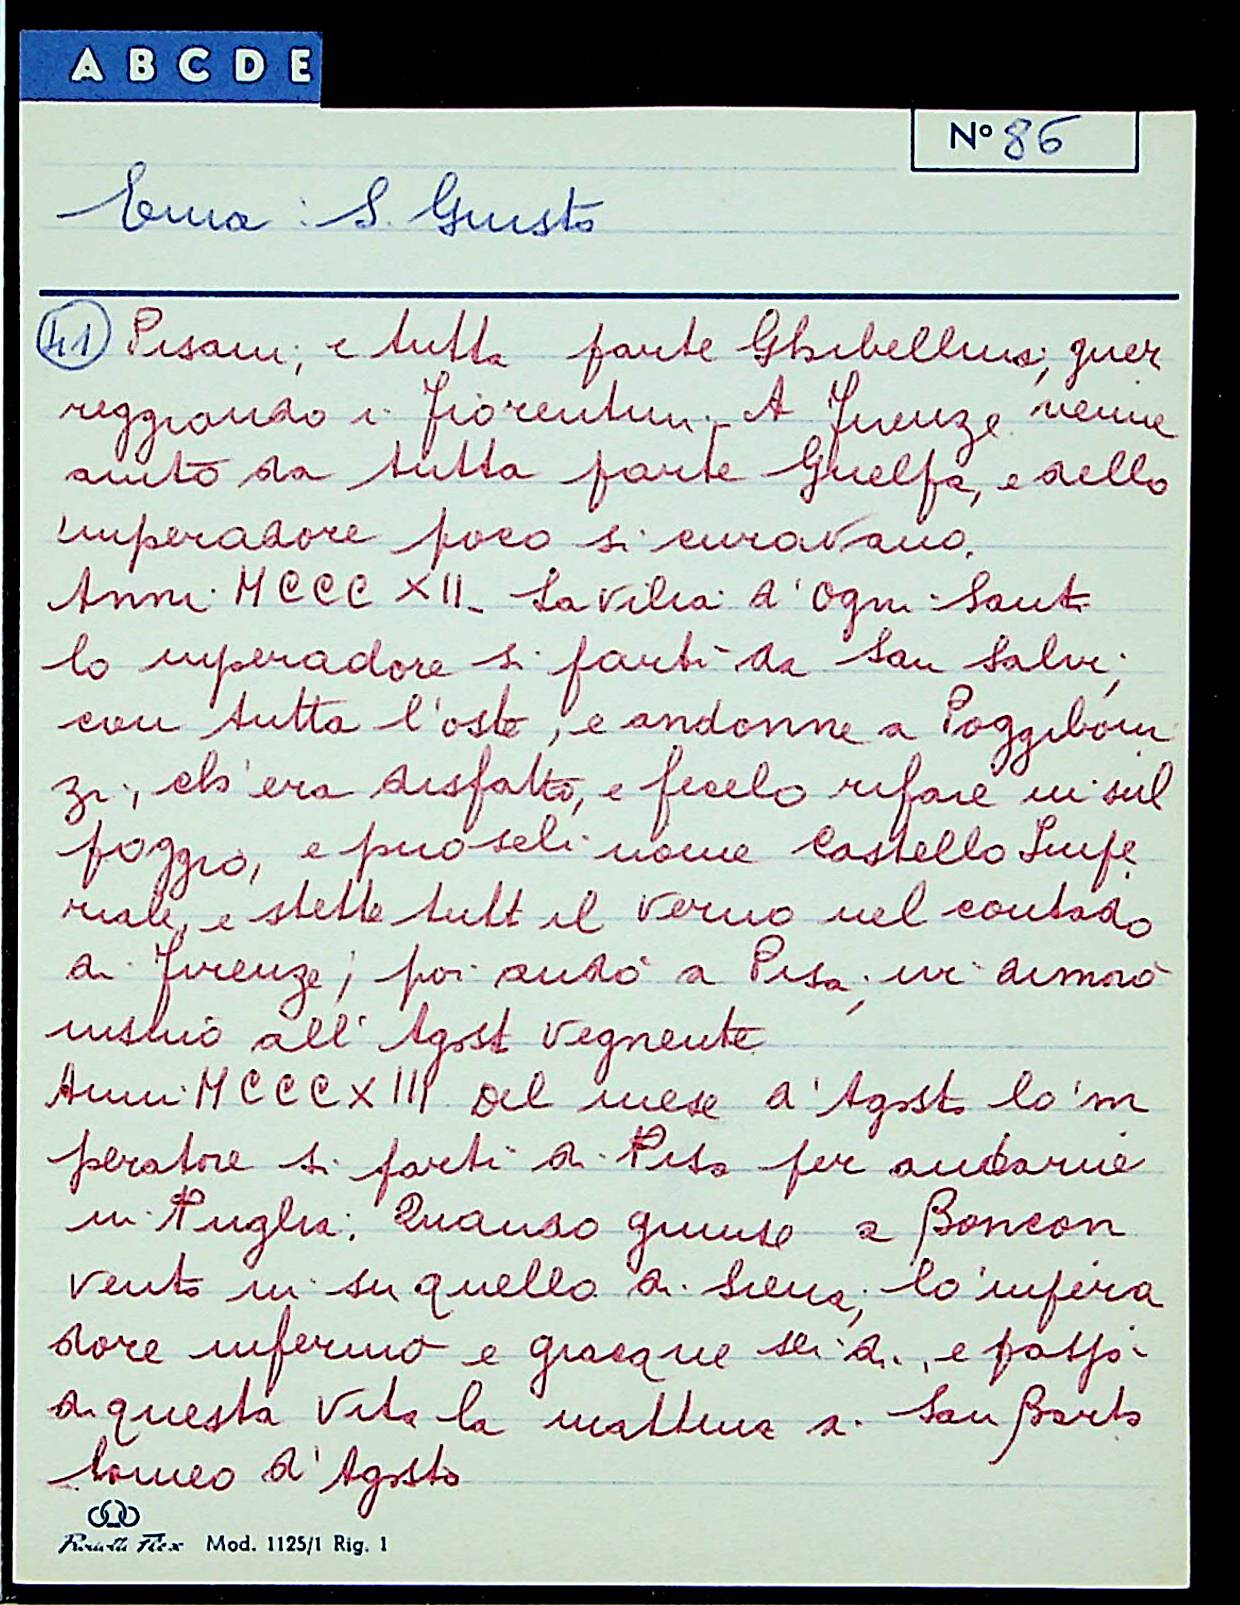 A B C D E
Nº 86
Ema : S. Giusto
41 Pisani, e tutta parte Ghibellina, guer
reggiando i Fiorentini. A Firenze venne
aiuto da tutta parte Guelfa, e dello
'mperadore poco si curavano.
Anni MCCCXII. La vilia d'Ogni Santi
lo imperadore si partì da San Salvi,
con tutta l'oste, e andonne a Poggiboni
zi, ch'era disfatto, e fecelo rifare in sul
poggio, e puoseli nome Castello Impe
riale, e stette tutt il verno nel contado
di Firenze; poi andò a Pisa, ivi dimorò
insino all'Agosto vegnente
Anni MCCCXIII Del mese d'Agosto lo 'm
peratore si partì di Pisa per andarne
in Puglia. Quando giunse a Boncon
vento in su quello di Siena, lo 'mpera
dore infermò e giacque sei dì, e passò
di questa vita la mattina di San Barto
lomeo d'Agosto
Mod. 1125/1 Rig. 1